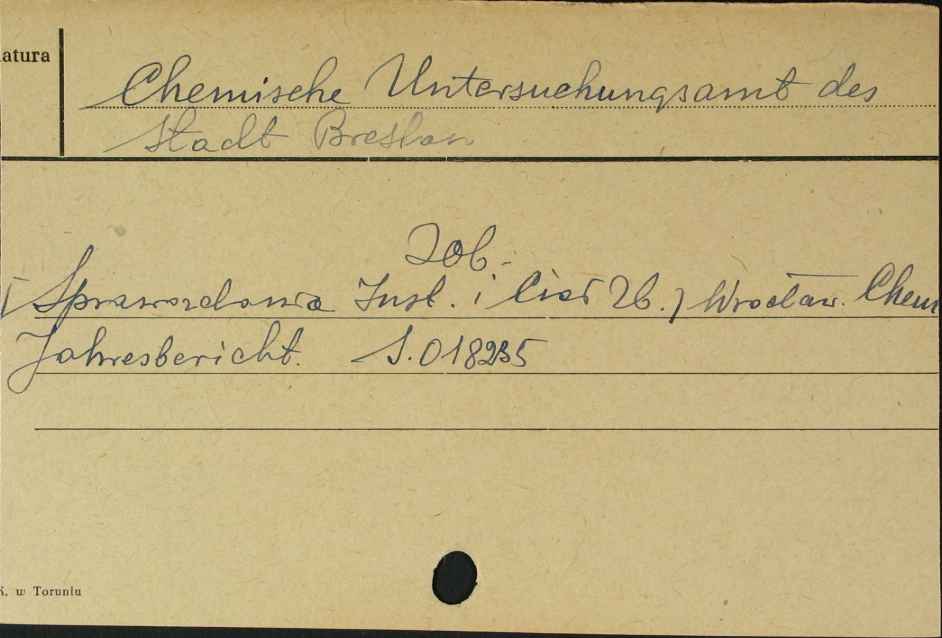 atura
Chemische Untersuchungsamt des
Stadt Breslau
Zob.
Sprawozdania Inst. i Ciał Zb.) Wrocław. Chem
Jahresbericht. S.018235
K. w Toruniu